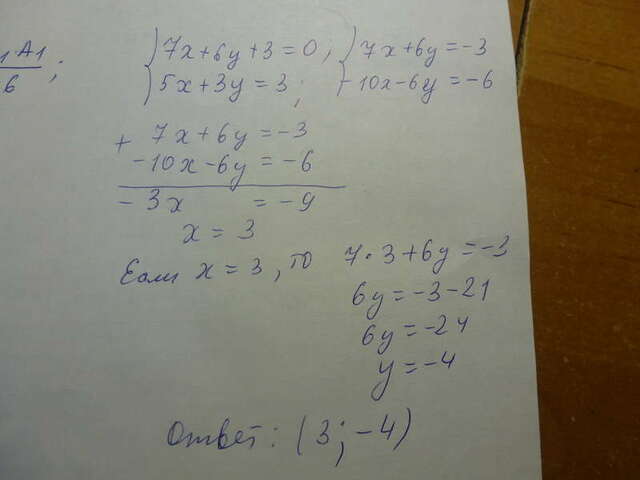 1A1
6 ;
{ 7x+6y+3=0; { 7x+6y=-3
5x+3y=3; -10x-6y=-6
+ 7x+6y=-3
-10x-6y=-6
-3x = -9
x = 3
Если x=3, то 7·3+6y=-3
6y=-3-21
6y=-24
y=-4
Ответ: (3;-4)